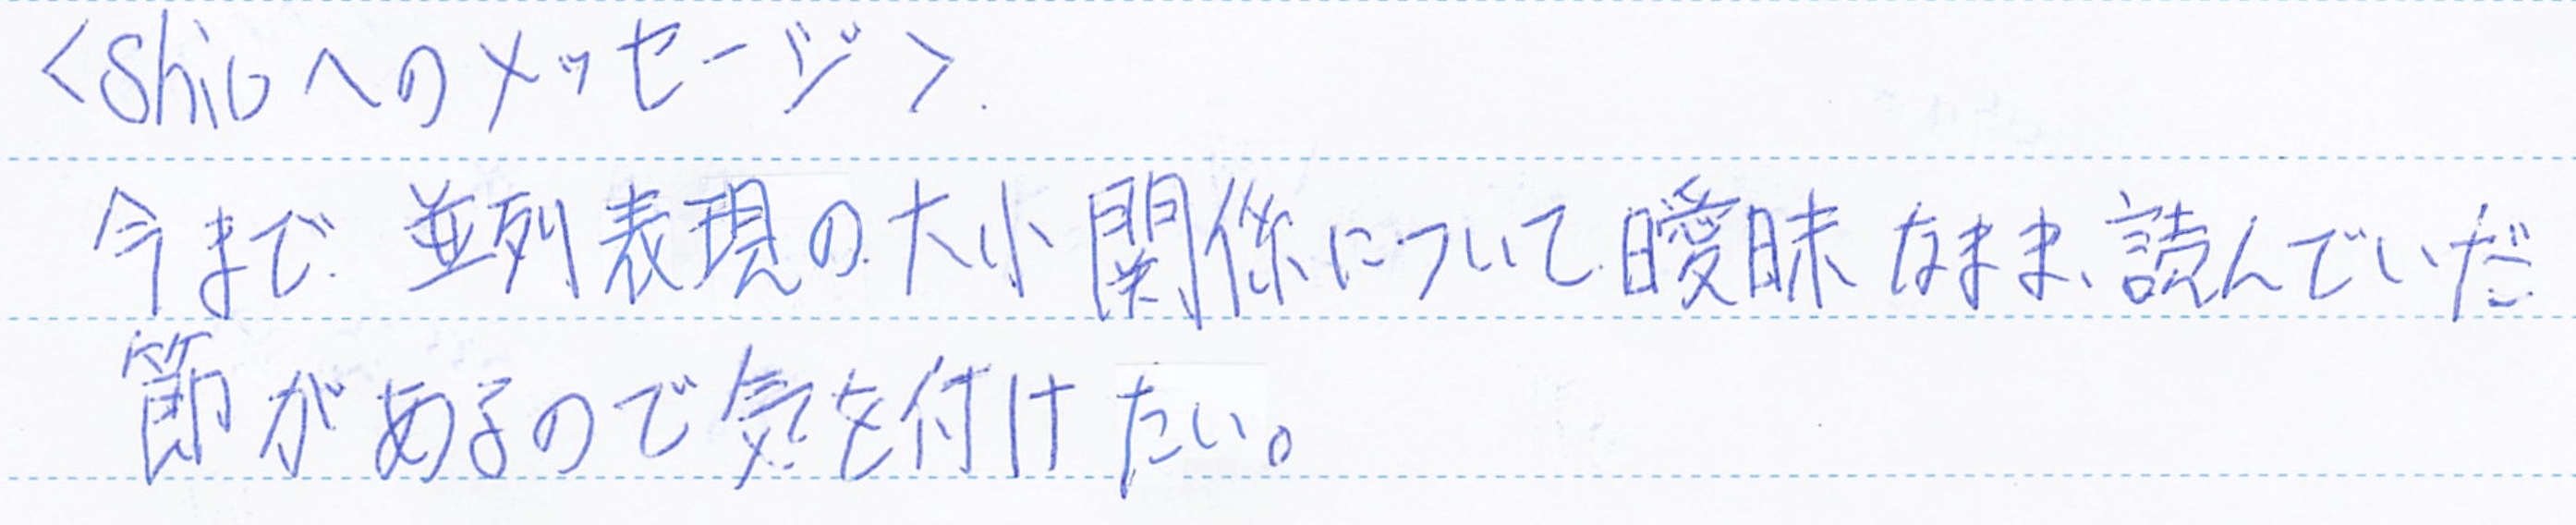 <Shioへのメッセージ>
今まで並列表現の大小関係について曖昧なまま、読んでいだ
節があるので気を付けたい。